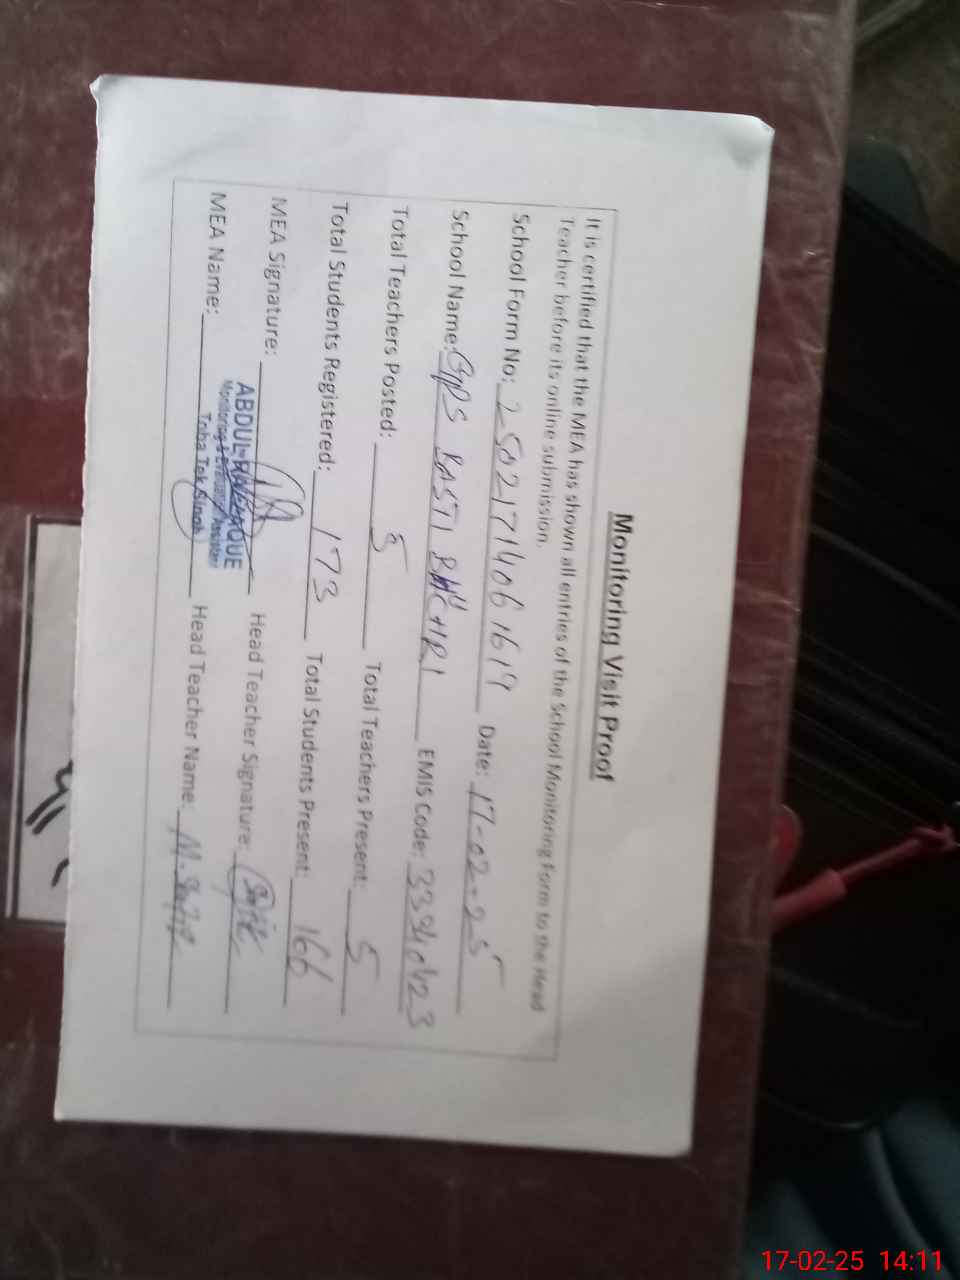 Monitoring Visit Proof
It is certified that the MEA has shown all entries of the School Monitoring Form to the Head
Teacher before its online submission.
School Form No: 25021714061619 Date: 17-02-25
School Name: GPS BASTI EMIS Code: 33340423
Total Teachers Posted: 5 Total Teachers Present: 5
Total Students Registered: 173 Total Students Present: 166
MEA Signature: Head Teacher Signature:
ABDUL
Monitoring & Evaluation Assistant
Toba Tek Singh
MEA Name: Head Teacher Name: M.
17-02-25 14:11